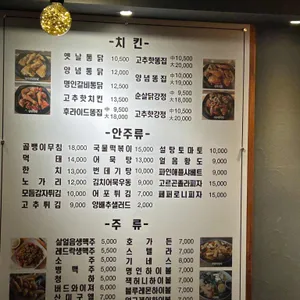 -치 킨-
옛 날 통 닭 10,500
양 념 통 닭 11,500
명인갈비통닭 11,500
고추핫치킨 13,500
후라이드똥집 中 9,500 大 18,000
고추핫똥집 中 10,500 大 20,000
양념똥집 中 10,500 大 20,000
순살닭강정 中 9,500 大 18,000
고추핫강정 中 10,500
-안주류-
골뱅이무침 18,000
먹 태 14,000
한 치 13,000
노 가 리 12,000
모듬감자튀김 10,000
고 추 튀 김 9,000
국물떡볶이 15,000
어 묵 탕 13,000
번 데 기 탕 10,000
김치어묵우동 10,000
어 포 튀 김 7,000
양배추샐러드 2,000
설탕토마토 10,000
얼 음 황 도 9,000
파인애플샤베트 9,000
고르곤졸라피자 15,000
페퍼로니피자 15,000
-주 류-
살얼음생맥주 5,000
레드락생맥주 5,500
소 주 5,000
병 맥 주 5,000
청 하 5,000
버드와이져 6,000
산 미 구 엘
호 가 든 7,000
스 텔 라 7,000
기 네 스 8,000
명인하이볼 7,000
잭허니하이볼 7,000
블루레몬하이볼 7,000